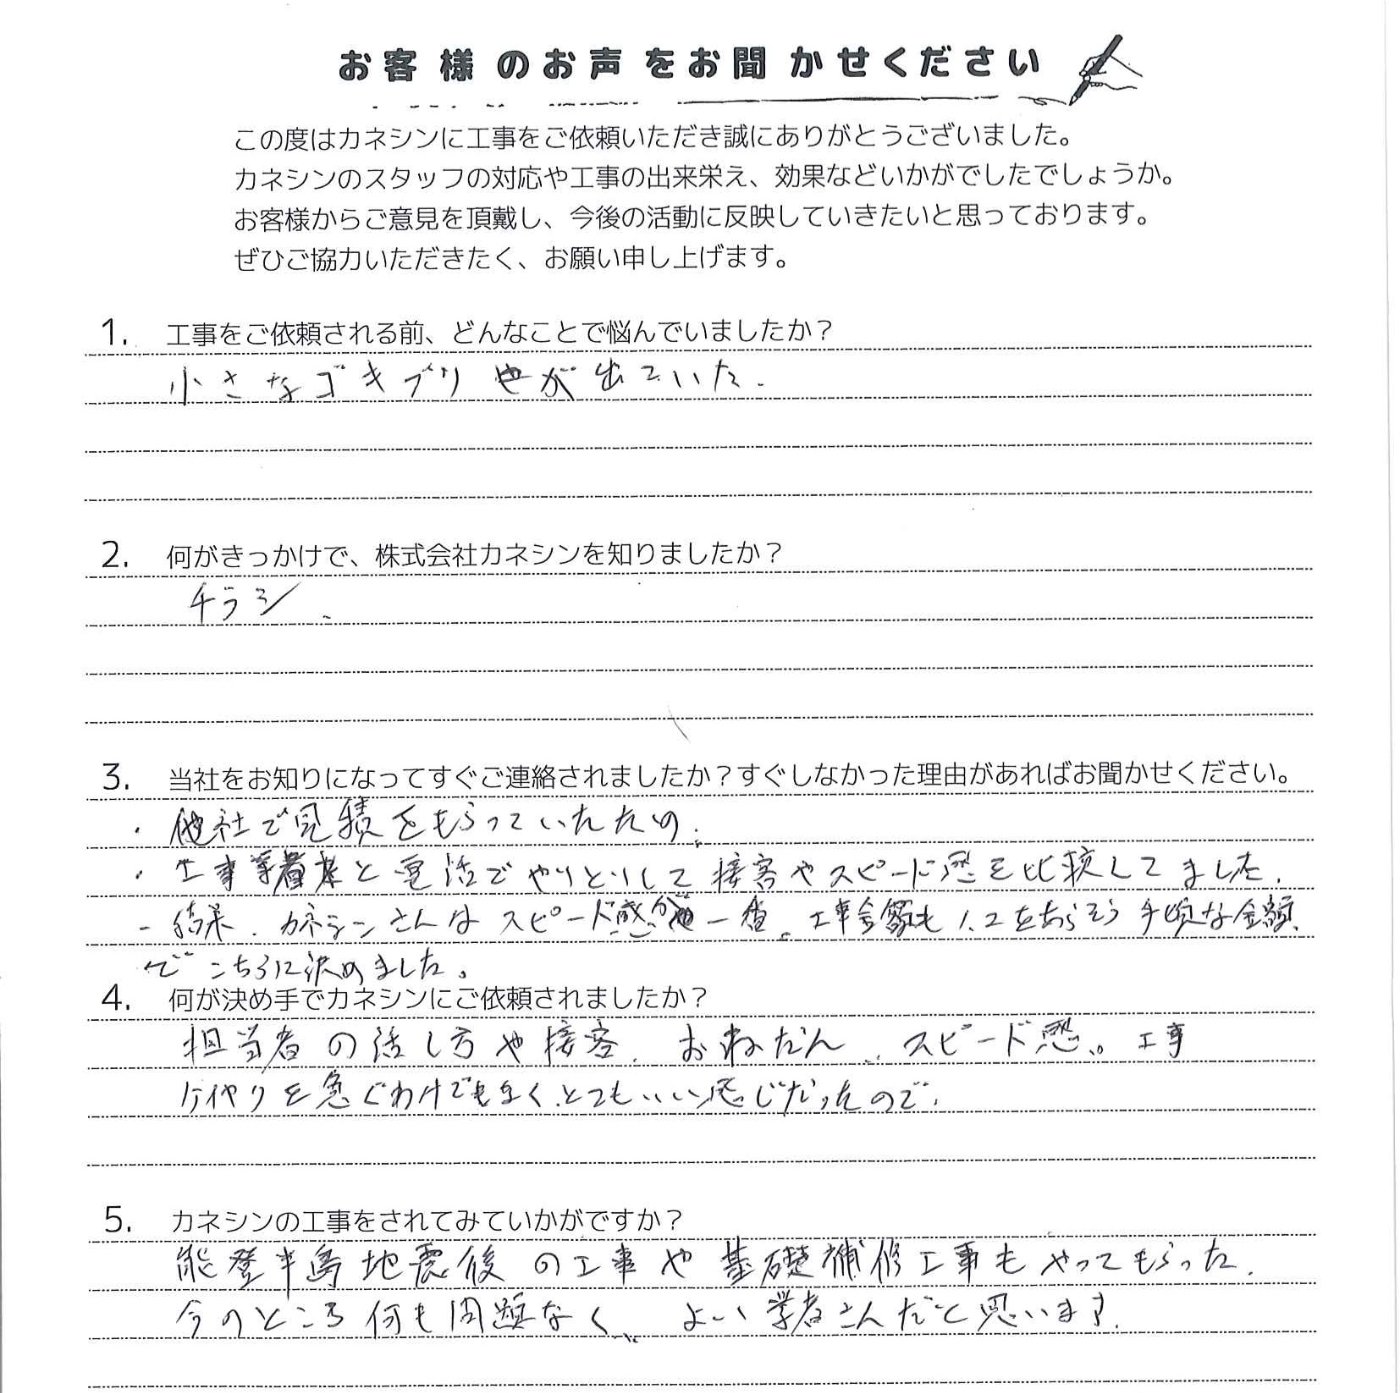 お客様のお声をお聞かせください
この度はカネシンに工事をご依頼いただき誠にありがとうございました。
カネシンのスタッフの対応や工事の出来栄え、効果などいかがでしたでしょうか。
お客様からご意見を頂戴し、今後の活動に反映していきたいと思っております。
ぜひご協力いただきたく、お願い申し上げます。
1. 工事をご依頼される前、どんなことで悩んでいましたか？
小さなゴキブリ が出ていた.
2. 何がきっかけで、株式会社カネシンを知りましたか？
チラシ、
3. 当社をお知りになってすぐご連絡されましたか？すぐしなかった理由があればお聞かせください。
・他社で見積をもらっていたため、
・工事業者 と電話でやりとりして接客やスピード感を比較してました.
- 結果、カネシンさんはスピード感が 一番。工事金額も1.2をあらそう手頃な金額、
でこちらに決めました。
4. 何が決め手でカネシンにご依頼されましたか？
担当者の話し方や接客、おねだん、スピード感。工事
を急ぐわけでもなく、とてもいい感じだったので、
5. カネシンの工事をされてみていかがですか？
能登半島地震後の工事や基礎補修工事もやってもらった.
今のところ何も問題なく、よい業者さんだと思います.